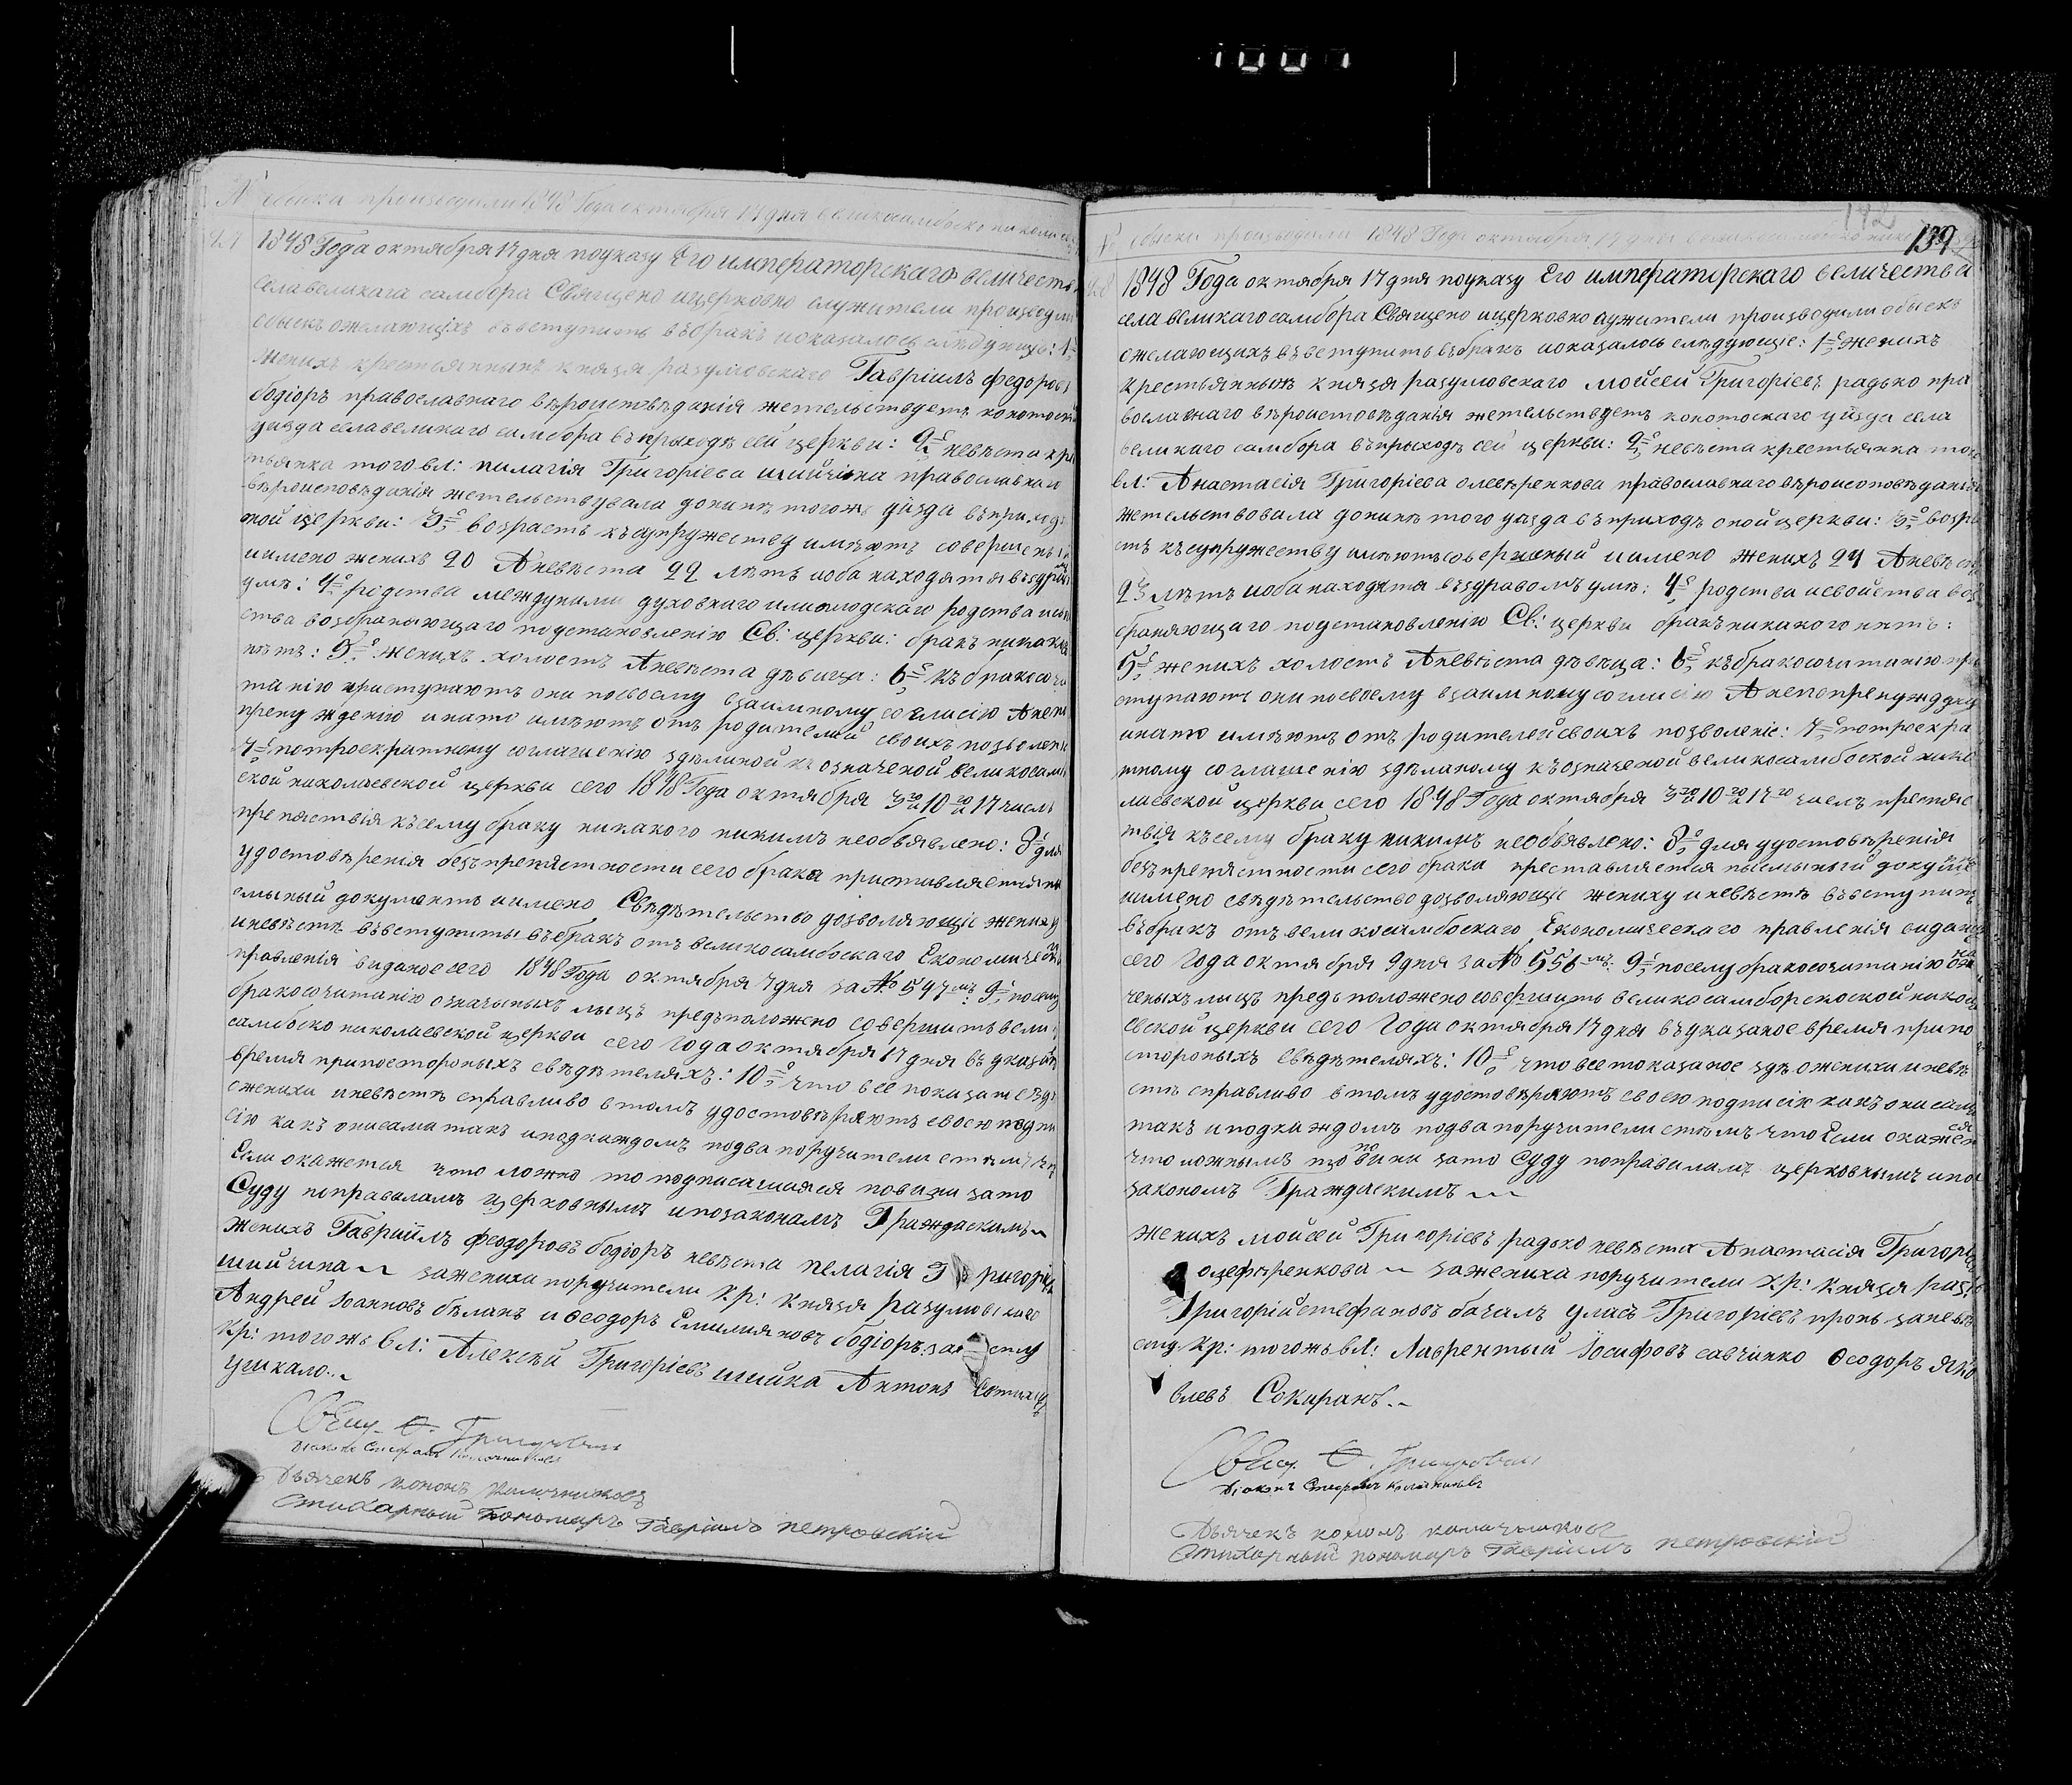 № обыски производили 1848 Года октября 17 дня великосамбоско николаев
47 1848 Года октября 17 дня поуказу Его императорскаго величеств
села великага самбора Священо ицерковно служители производили
обыскъ ожелающихъ въвступить въбракъ ипоказалось слѣдующіе: 1-е
женихъ крестьянынъ князя разумовскаго Гавріилъ федоровъ
бодіоръ православнаго вѣроисповѣданія жетельствуетъ конотоскаго
уизда села великаго самбора въпрыходѣ сей церкви: 2-е невѣста кре
тьянка того вл: пилагія Григоріева шийчина православнаго
вѣроисповѣданія жетельствувала донинѣ тогожъ уизда въприходѣ
оной церкви: 3-е возрастъ къ супружеству имѣютъ совершены
иимено женихъ 20 Аневѣста 22 лѣтъ иоба находятся въздраво
умѣ: 4-е родства междуними духовнаго илиплодскаго родства исвой
ства возбраняющаго подстановленію Св: церкви: бракъ никакого
нѣтъ: 5-е женихъ холостъ Аневѣста дѣвица: 6-е къ бракосоче
танію приступаютъ они посвоему взаимному согласію Анепо
прену жденію инато имѣютъ отъ родителей своихъ позволеніе
7-е потроекратному соглашенію здѣланой къ означеной великосамбо
ской николаевской церкви сего 1848 Года октября 3го 10го 17 числъ
препятствія къ сему браку никакого никимъ необъявлено: 8-е для
удостовѣренія безъпрепятстности сего брака приставляется пи
смыный документъ иимено Свѣдѣтельство дозволяющіе жениху
иневѣстѣ въвступиты въбракъ отъ великосамбоскаго Економичес
правленія виданое сего 1848 Года октября 7 дня за № 547мъ: 9-е посему
бракосочитанію означыныхъ лыцъ предъположено совершить вели
самбоско николаевской церкви сего Года октября 17 дня въуказано
время припосторонихъ свѣдѣтеляхъ: 10-е что все показаное здѣ
оженихи иневѣстѣ справливо втомъ удостовѣряютъ своею подпи
сію какъ онисами такъ иподкаждомъ подва поручители стѣмъ что
Если окажется что ложно то подписавшыися повини зато
Суду поправиламъ церковнымъ ипозаконамъ Граждаскимъ
женихъ Гавріилъ феодоровъ бодіоръ невѣста пелагія Григоріева
шийчина зажениха поручители кр: князя разумовскаго
Андрей Іоанновъ бѣланъ и Ѳеодоръ Емилияновъ бодіоръ: за невѣсту
кр: тогожъ вл: Алексѣй Григоріевъ шийка Антонъ
узикало
Свящ. Ѳ. Григоровичъ
Діаконъ Стефанъ Калачниковъ
Дьячекъ кононъ калачниковъ
Стихарный пономаръ Гавріилъ петровскій
142
139
№ обыски производили 1848 Года октября 17 дня великосамбоско нико
48 1848 Года октября 17 дня поуказу Его императорскаго величества
села великаго самбора Священо ицерковно служители производили обыскъ
ожелающихъ въвступить въбракъ ипоказалось слѣдующіе: 1-е женихъ
крестьянынъ князя разумовскаго мойсей Григоріевъ радько пра
вославнаго вѣроисповѣданія жетельствуетъ конотоскаго уизда села
великаго самбора въпрыходѣ сей церкви: 2-е невѣста крестьянка того
вл: Анастасія Григоріева олеѣренкова православнаго вѣроисповѣданія
жетельствовала донинѣ того уѣзда въприходѣ оной церкви: 3-е возра
стъ къ супружеству имѣютъ совершеный иимено женихъ 24 Аневѣста
23 лѣтъ иоба находятся въздравомъ умѣ: 4-е родства исвойства воз
браняющаго подстановленію Св: церкви бракъ никакого нѣтъ:
5-е женихъ холостъ Аневѣста дѣвица: 6-е къ бракосочитанію при
ступаютъ они посвоему взаимному согласію Анепопренуждену
инато имѣютъ отъ родителей своихъ позволеніе: 7-е потроекра
тному соглашенію здѣланому къозначеной великосамбоской нико
лаевской церкви сего 1848 Года октября 3го 10го 17го числъ препяс
твія къ сему браку никимъ необъявлено: 8-е для удостовѣренія
безъпрепятстности сего брака преставляется писмыный докуме
иимено свѣдѣтельство дозволяющіе жениху иневѣстѣ въвступить
въбракъ отъ великосамбоскаго Економическаго правленія видано
сего Года октября 9 дня за № 556мъ: 9-е посему бракосочитанію озна
ченыхъ лицъ предъположено совершить великосамборскоской никола
евской церкви сего Года октября 17 дня въуказаное время припо
стороныхъ свѣдѣтеляхъ: 10-е что все показаное здѣ оженихи иневѣ
стѣ справливо втомъ удостовѣряютъ своею подписію какъ онисами
такъ иподкаждомъ подва поручители стѣмъ что Если окажется
что ложнымъ то повини зато Суду поправиламъ церковнымъ ипо
закономъ Граждаскимъ
женихъ мойсей Григоріевъ радько невѣста Анастасія Григоріева
олеференкова зажениха поручители кр: князя раз:
Григорій стефановъ бачалъ уласъ Григоріевъ пронь заневѣ
сту кр: тогожъ вл: Лаврентый Іосифовъ савчинко Ѳеодоръ Яко
влевъ Сокиранъ.
Свящ. Ѳ. Григоровичъ
Діаконъ Стефанъ Калачниковъ
Дьячекъ кононъ калачыиковъ
Стихарный пономаръ Гавріилъ петровскій